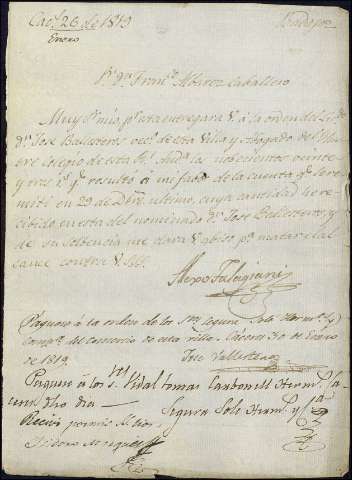 Cac.s 26 de 1819
Enero
S.r D.n Fran.co Alvarez Caballero
Muy S.r mio, p.r esta entregará V. á la orden del Lic.do
D.n José Ballesteros vec.o de esta Villa y Abogado del Ilustre
Colegio de esta R.l Aud.a las nobecientos veinte
y tres r.s q.e resultó á mi fabor de la cuenta q.e le re
miti en 29 de Dbre. ultimo, cuya cantidad he re
cibido en esta del nominado D.n José Ballesteros, y
de su
me dara V. abiso p.a matar el al
cance contra V.
Paguese á la orden de los S.res Segura Solo Herm.s y
Comp.a del comercio de esta villa. Cáceres 30 de Enero
de 1819.
José Ballesteros
Paguese á los S.res Vidal tomas Carbonell Herm.s
dho dia
Segura Solo Herm.s y C.a
Recivi
Isidoro Marquez